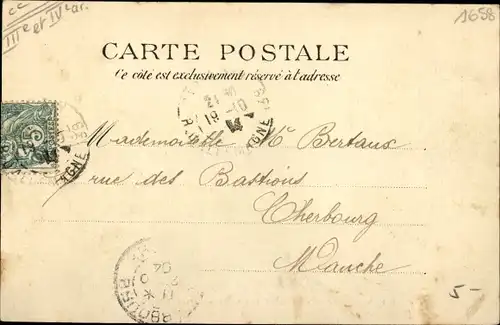 cc
IIIe et IVe ar.
1658
CARTE POSTALE
Ce côté est exclusivement réservé à l'adresse
Mademoiselle M. Bertaux
rue des Bastions
Cherbourg
Manche
5-